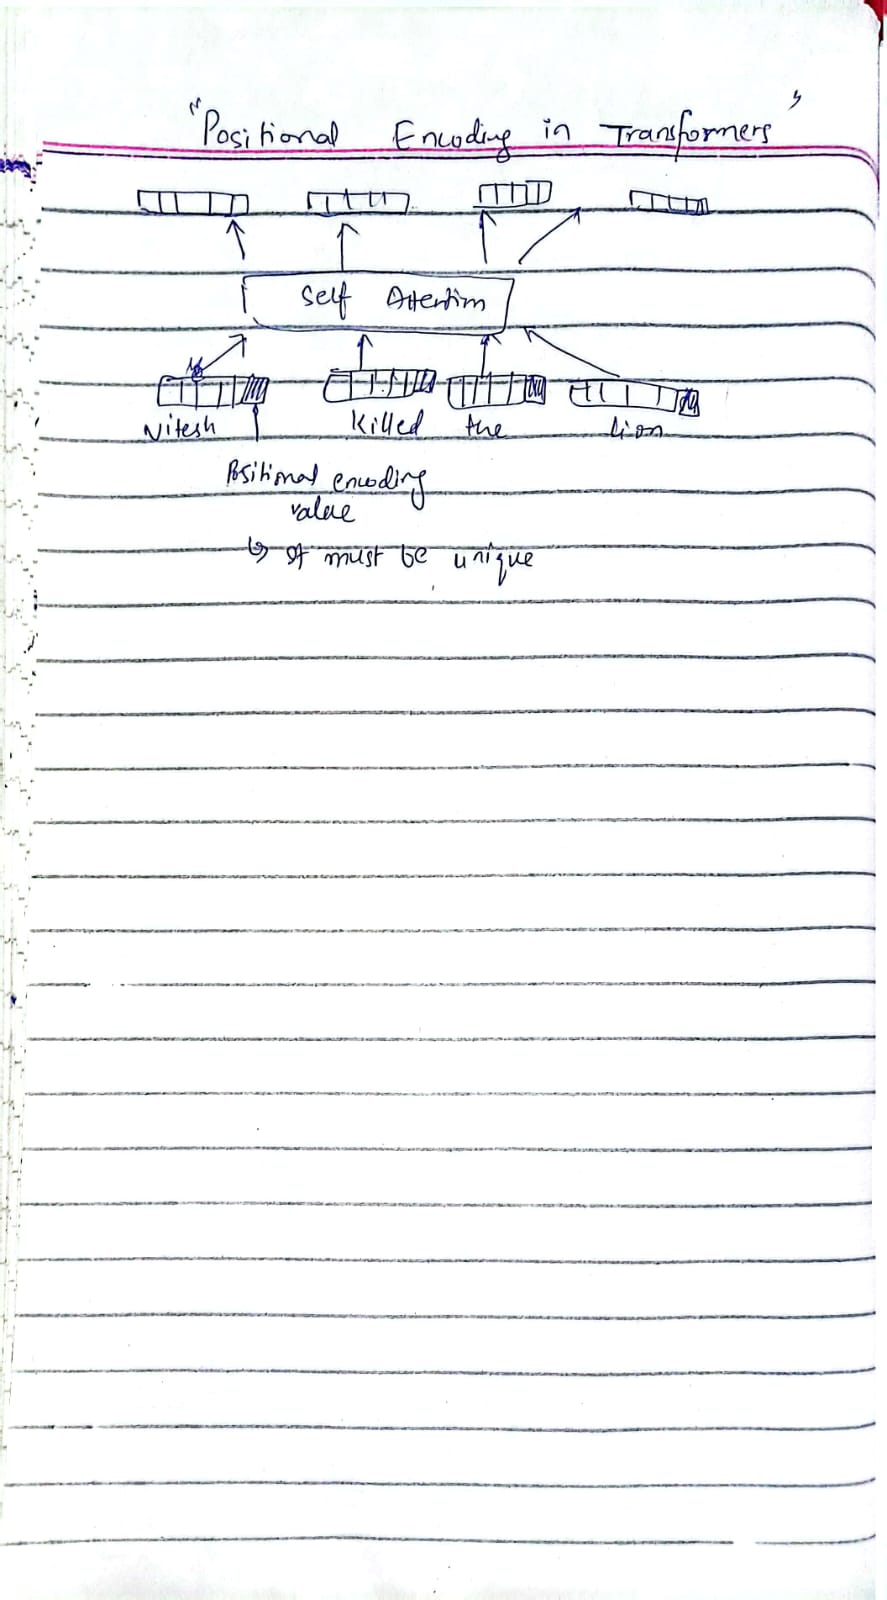 "Positional Encoding in Transformers"
Self Attention
Nitesh Killed the lion
Positional encoding
value
↳ It must be unique